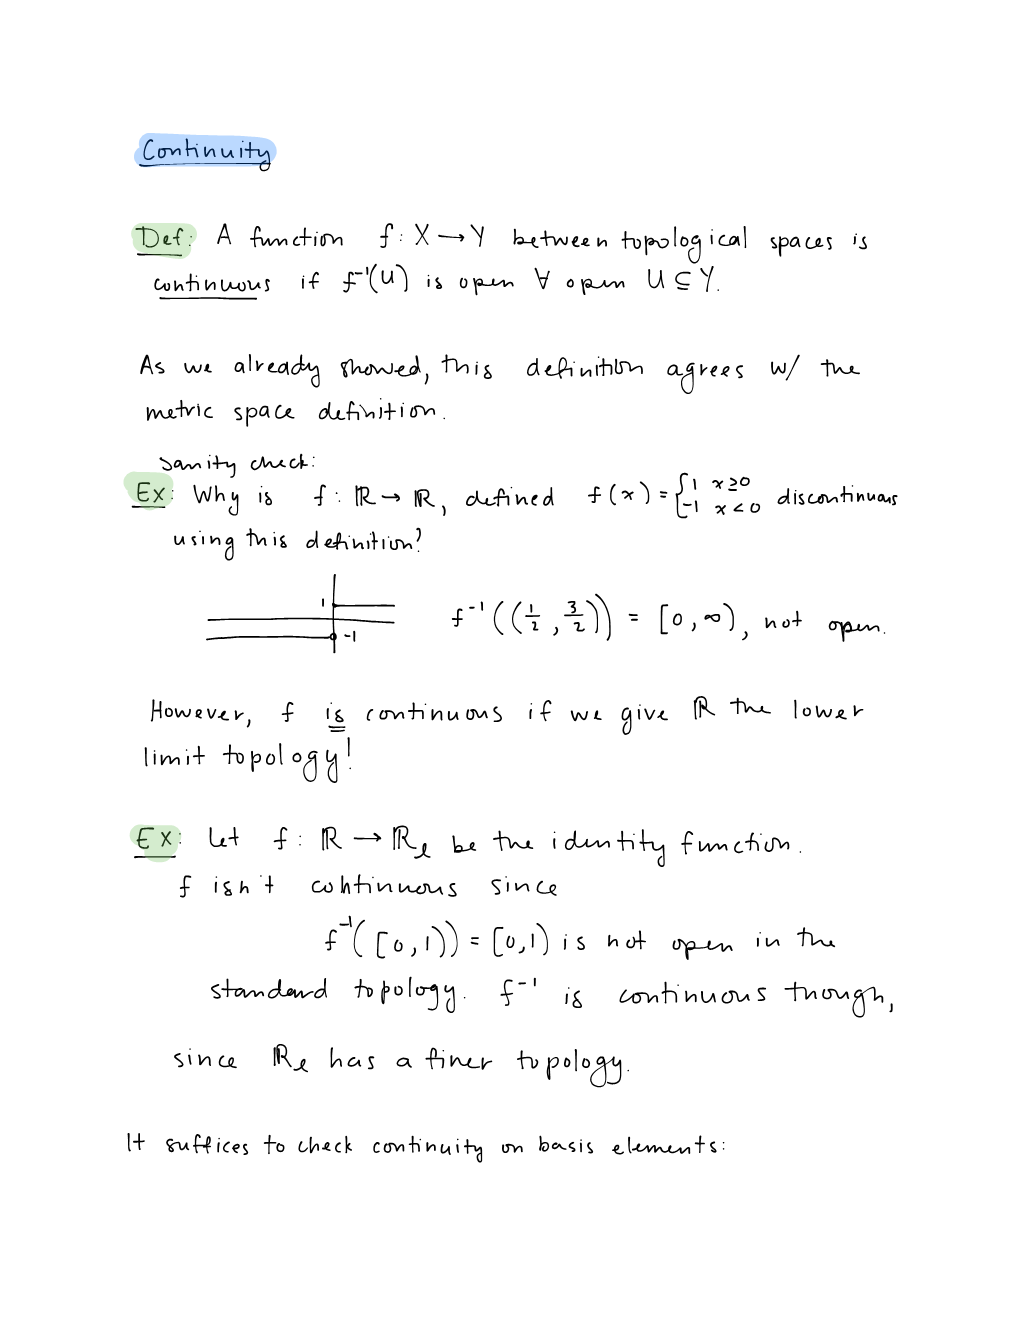 Continuity
Def: A function f: X → Y between topological spaces is
continuous if f⁻¹(U) is open ∀ open U ⊆ Y.
As we already showed, this definition agrees w/ the
metric space definition.
Sanity check:
Ex: Why is f: ℝ → ℝ, defined f(x) = { 1 x ≥ 0 -1 x < 0 discontinuous
using this definition?
1
-1
f⁻¹((1/2, 3/2)) = [0, ∞), not open.
However, f is continuous if we give ℝ the lower
limit topology!
Ex: Let f: ℝ → ℝ_ℓ be the identity function.
f isn't continuous since
f⁻¹([0,1)) = [0,1) is not open in the
standard topology. f⁻¹ is continuous though,
since ℝ_ℓ has a finer topology.
It suffices to check continuity on basis elements: